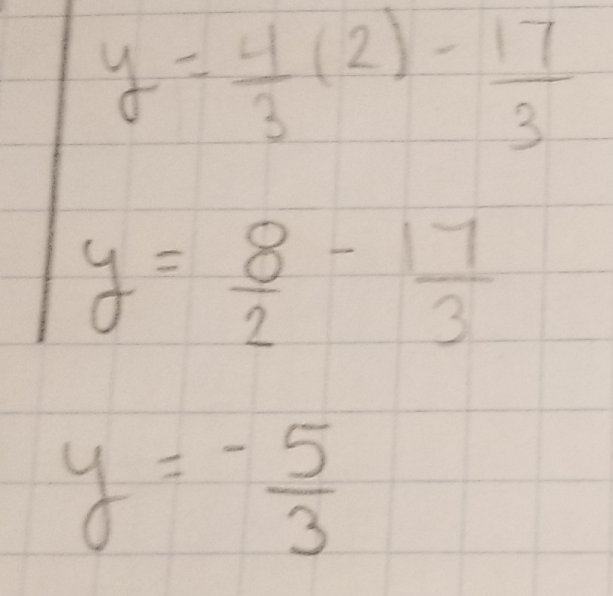 y = 4/3 (2) - 17/3
y = 8/2 - 17/3
y = - 5/3